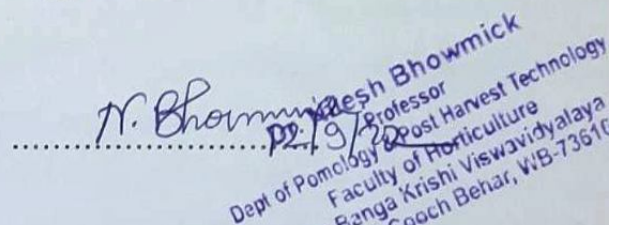 N. Bhowmick
esh Bhowmick
Professor
Dept of Pomology & Post Harvest Technology
Faculty of Horticulture
Banga Krishi Viswavidyalaya
Cooch Behar, WB-73610